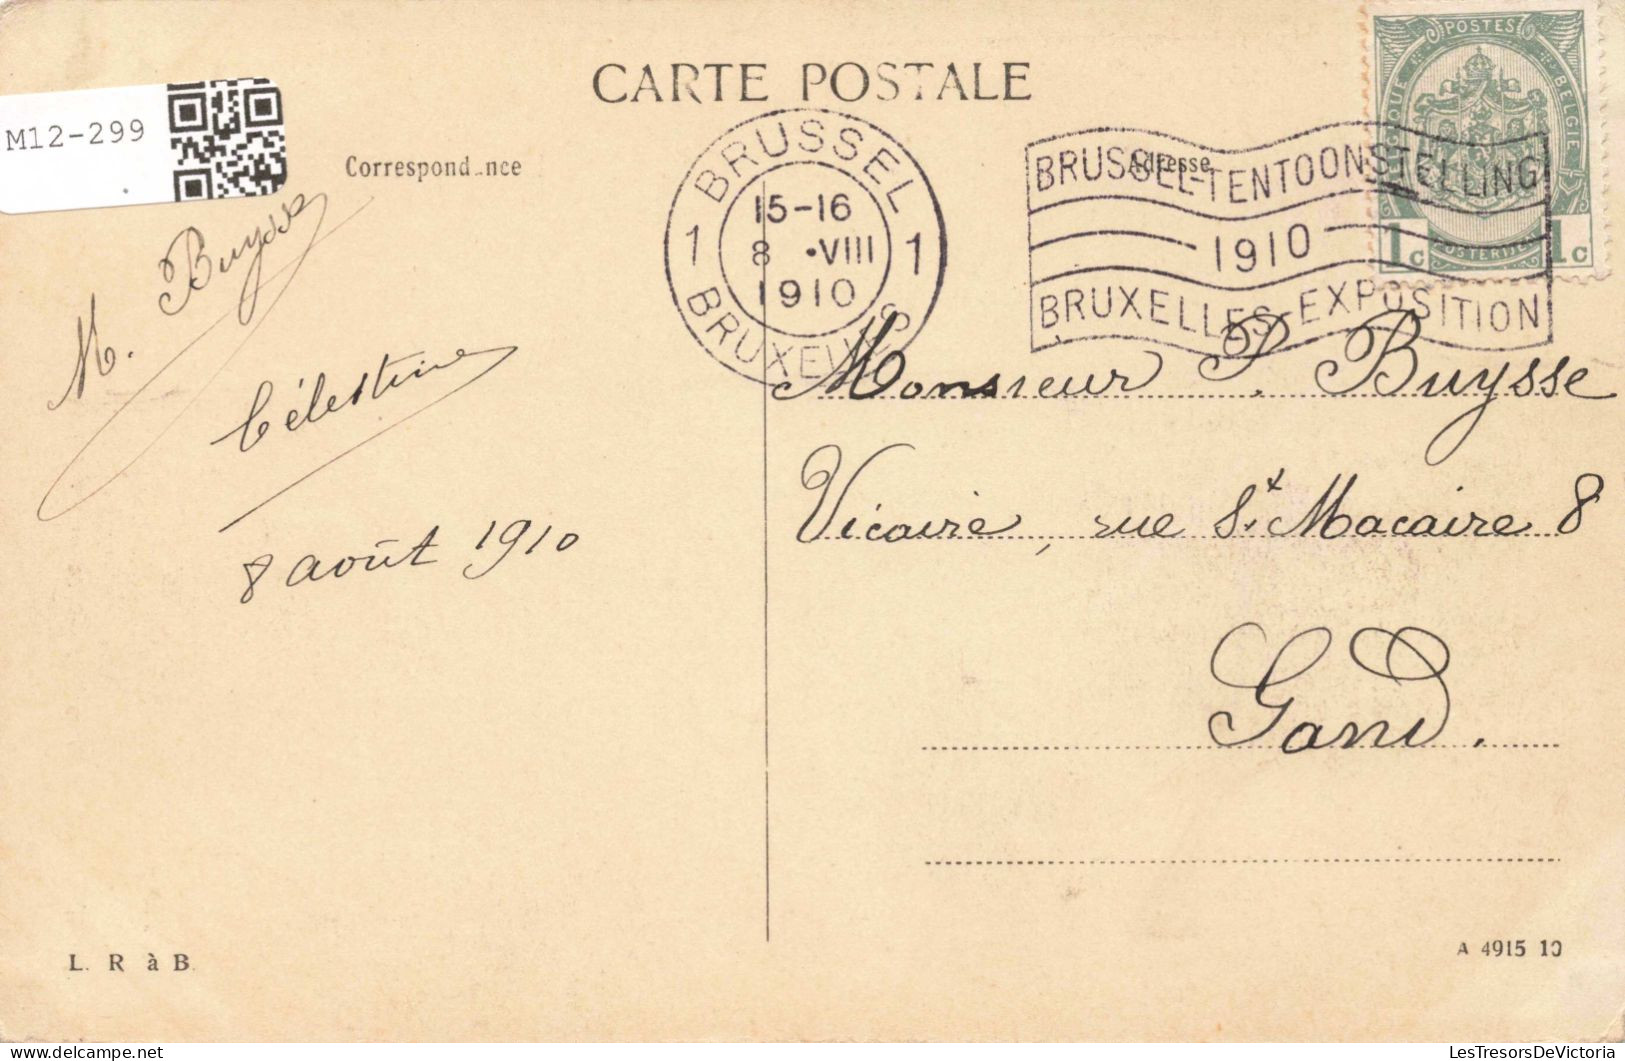 CARTE POSTALE
M12-299
Correspond nce
Adresse
BRUSSEL
15-16
1 8 •VIII 1
1910
BRUXELLES
BRUSSEL-TENTOONSTELLING
1910
BRUXELLES-EXPOSITION
POSTES
BELGIE
1c 1c
M. Buysse
Célestine
8 août 1910
Monsieur P. Buysse
Vicaire, rue St. Macaire 8
Gand.
L. R à B.
A 4915 10
LesTresorsDeVictoria